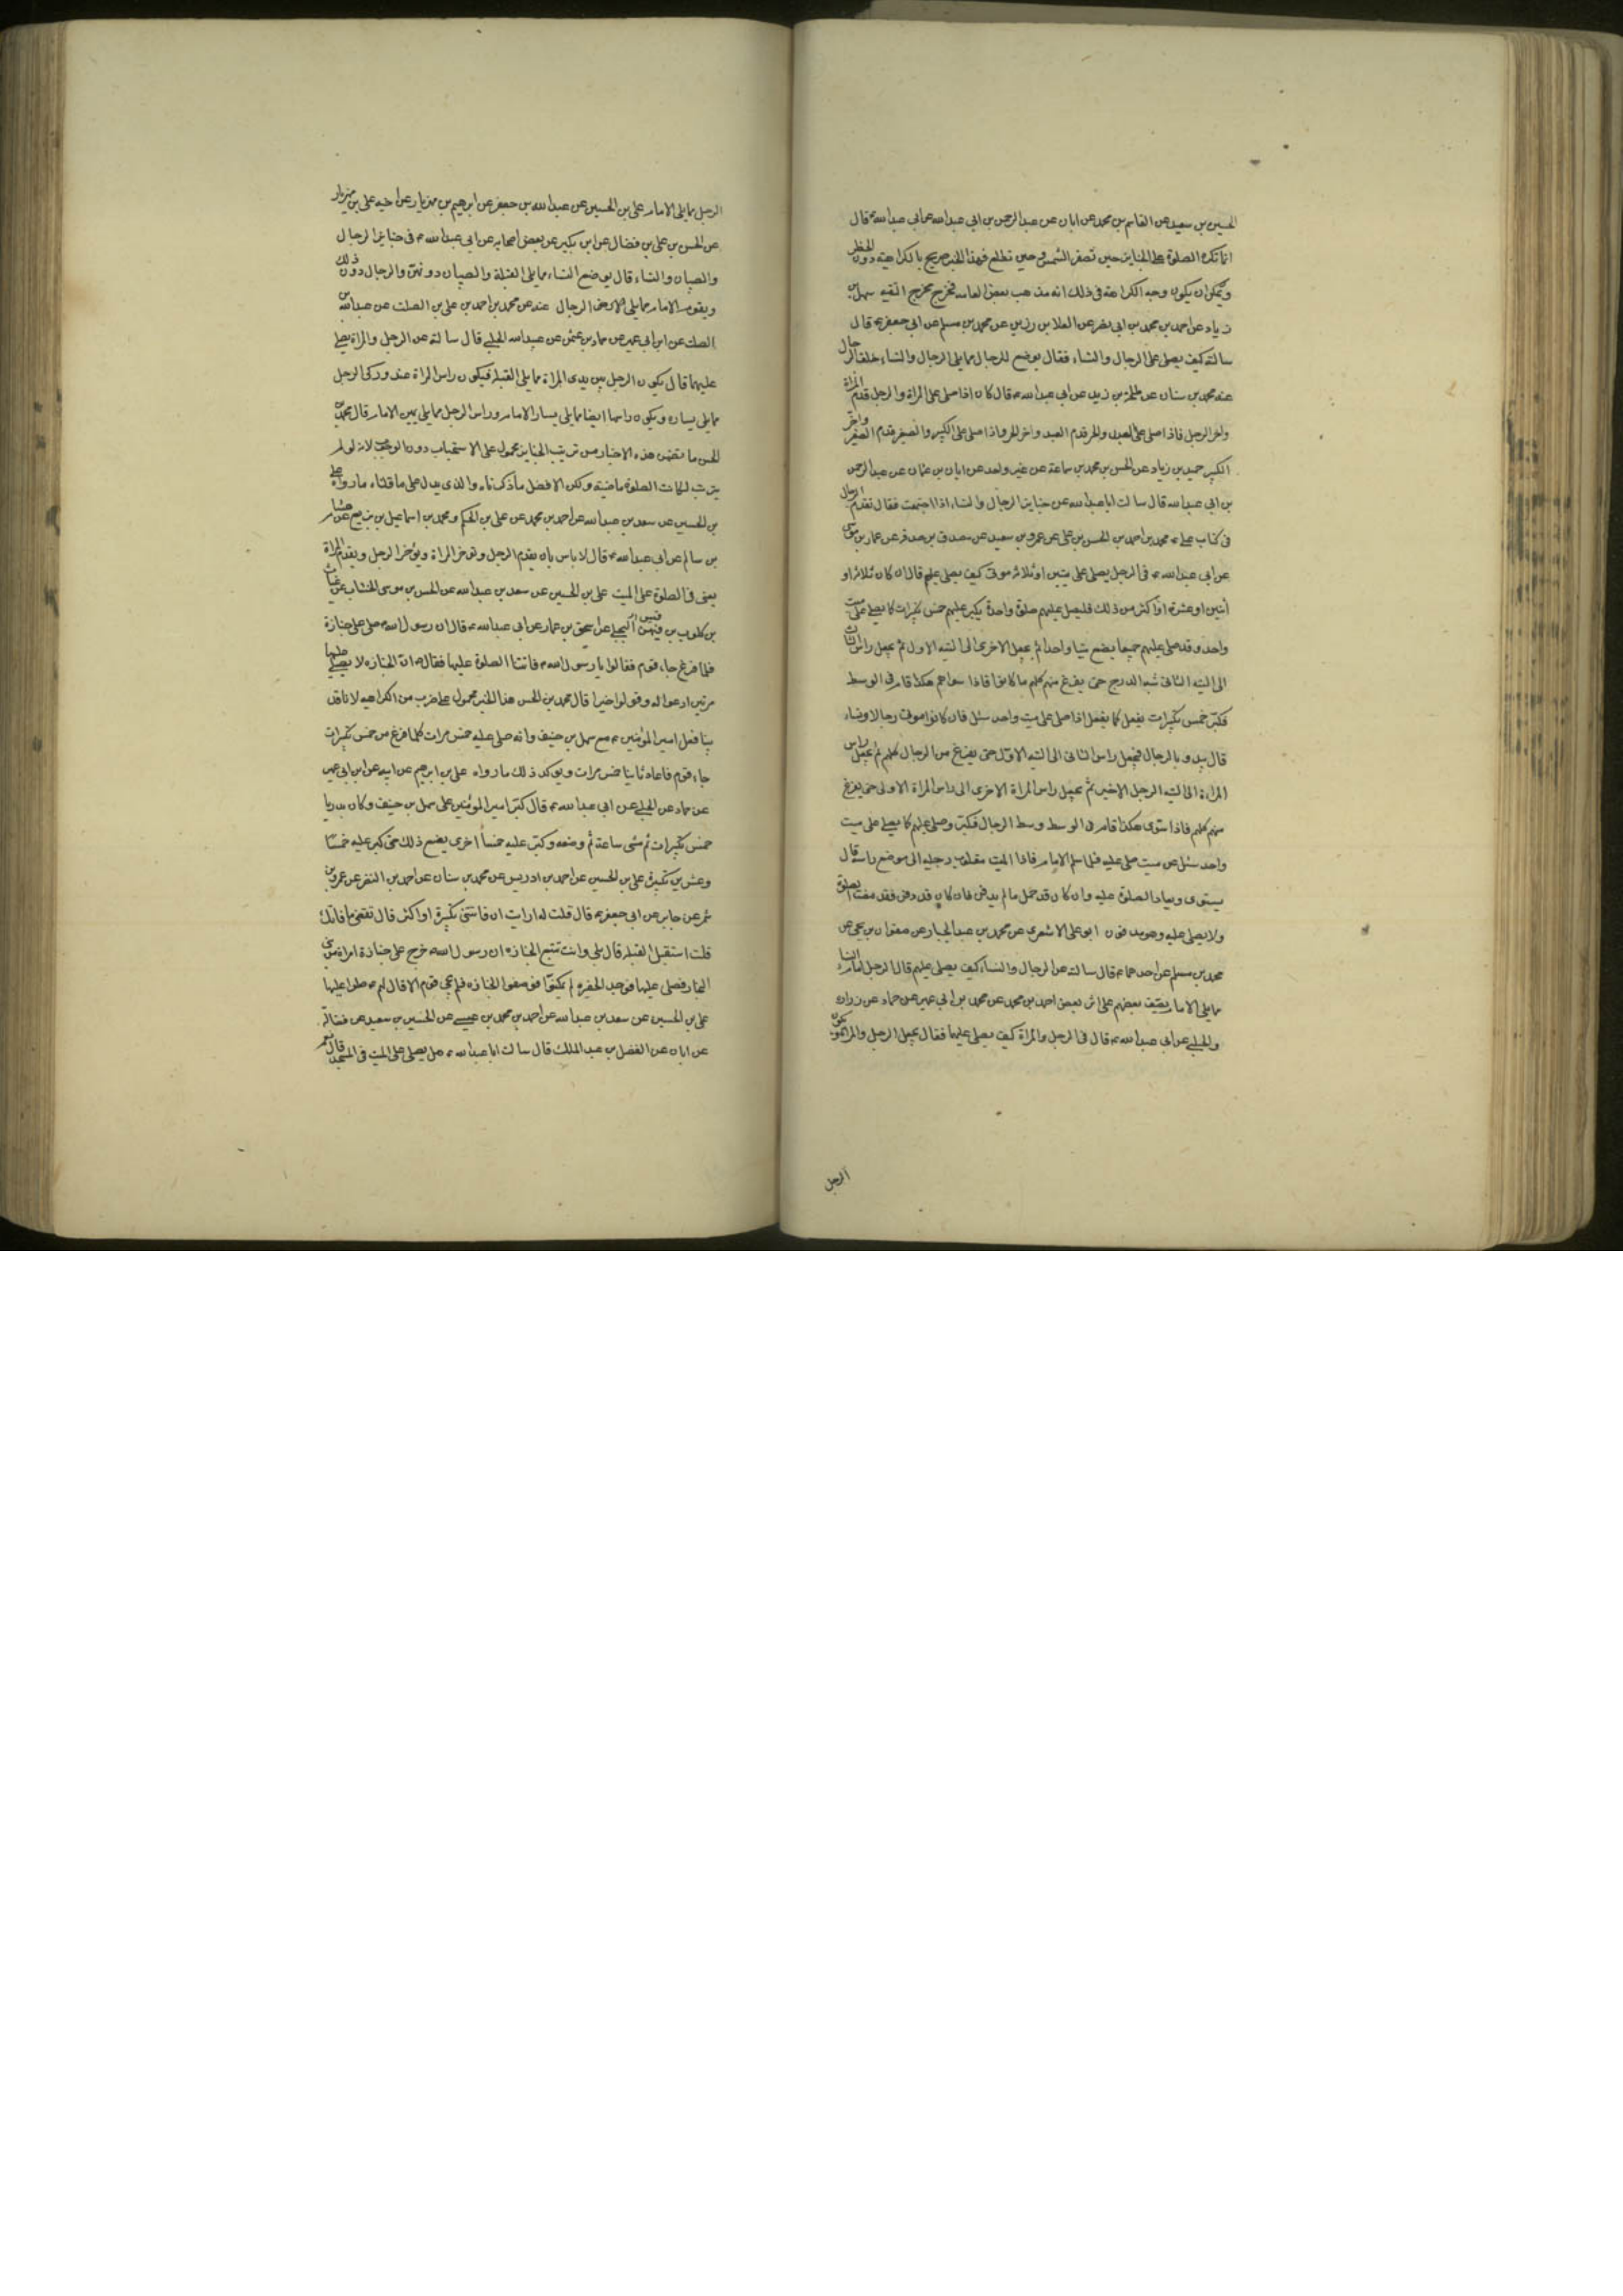 الحسين بن سعيد عن القاسم بن محمد عن ابان عن عبد الرحمن بن ابي عبد الله عن ابي عبد الله ع قال
انما تكره الصلوة على الجنايز حين تصفر الشمس وحين تطلع فهذا الخبر صريح بالكراهية دون الحظر
ويمكن ان يكون وجه الكراهة في ذلك انه مذهب بعض العامه فخرج مخرج التقيه سهل بن
زياد عن احمد بن محمد بن ابي نصر عن العلا بن رزين عن محمد بن مسلم عن ابي جعفر ع قال
سالته كيف يصلى على الرجال والنساء فقال يوضع للرجال مما يلي الرجال والنساء خلف الرجال
عنه محمد بن سنان عن طلحة بن زيد عن ابي عبد الله ع قال كان اذا صلى على المراة والرجل قدم المراة
واخر الرجل فاذا صلى على العبد والحر قدم العبد واخر الحر واذا صلى على الكبير والصغير قدم الصغير واخر
الكبير حميد بن زياد عن الحسن بن محمد بن سماعة عن غير واحد عن ابان بن عثمان عن عبد الرحمن
بن ابي عبد الله قال سالت ابا عبد الله عن جنايز الرجال والنساء اذا اجتمعت فقال تقدم الرجال
في كتاب علي ع محمد بن احمد بن الحسن بن علي عن عمرو بن سعيد عن مصدق بن صدقة عن عمار بن موسى
عن ابي عبد الله ع في الرجل يصلي على ميتين او ثلاثه موتى كيف يصلي عليهم قال ان كان ثلاثه او
اثنين او عشرة او اكثر من ذلك فليصل عليهم صلوة واحدة يكبر عليهم خمس تكبيرات كما يصلي على ميت
واحد وقد صلى عليهم جميعا يضع ميتا واحدا ثم يجعل الاخرى الى اليته الاول ثم يجعل راس الثالث
الى اليته الثاني شبه المدرج حتى يفرغ منهم كلهم ما كانوا فاذا سواهم هكذا قام في الوسط
فكبر خمس تكبيرات يفعل كما يفعل اذا صلى على ميت واحد سئل فان كانوا موتى رجالا ونساء
قال يبدو بالرجال فيجعل راس الثاني الى اليته الاول حتى يفرغ من الرجال كلهم ثم يجعل راس
المراءة الى اليته الرجل الاخير ثم يجعل راس المراة الاخرى الى راس المراة الاولى حتى يفرغ
منهم كلهم فاذا استوى هكذا قام في الوسط وسط الرجال فكبر وصلى عليهم كما يصلي على ميت
واحد سئل عن ميت صلى عليه فلما سلم الامام فاذا الميت مقلوب رجليه الى موضع راسه قال
يستوى ويعاد الصلوة عليه وان كان قد حمل ما لم يدفن فان كان قد دفن فقد مضت الصلوة
ولا يصلى عليه وهو مدفون ابو علي الاشعري عن محمد بن عبد الجبار عن صفوان بن يحيى عن
محمد بن مسلم عن احدهما ع قال سالته عن الرجال والنساء كيف يصلي عليهم قال الرجل امام النساء
مما يلي الامام يصف بعضهم على اثر بعض احمد بن محمد عن محمد بن ابي عمير عن حماد عن زراره
والحلبي عن ابي عبد الله ع قال في الرجل والمراة كيف يصلي عليهما فقال يجعل الرجل والمراة ويكون
الرجل
الرجل مما يلي الامام علي بن الحسين عن عبد الله بن جعفر عن ابرهيم بن مهزيار عن اخيه علي بن مهزيار
عن الحسن بن علي بن فضال عن ابن بكير عن بعض اصحابه عن ابي عبد الله ع في جنايز الرجال
والصبيان والنساء قال يوضع النساء مما يلي القبلة والصبيان دونهن والرجال دون ذلك
ويقوم الامام مما يلي الرجال عنه عن محمد بن احمد بن علي بن الصلت عن عبد الله بن
الصلت عن ابن ابي عمير عن حماد بن عثمن عن عبيد الله الحلبي قال سالته عن الرجل والمراة يصلي
عليهما قال يكون الرجل بين يدى المراة مما يلي القبله فيكون راس المراة عند وركى الرجل
مما يلي يساره ويكون راسها ايضا مما يلي يسار الامام وراس الرجل مما يلي يمين الامام قال محمد بن
الحسن ما تضمن هذه الاخبار من ترتيب الجنايز محمول على الاستحباب دون الوجوب لانه لو لم
يترتب لكانت الصلوة ماضيه ولكن الافضل ما ذكرناه والذى يدل على ما قلناه ما رواه علي
بن الحسين عن سعد بن عبد الله عن احمد بن محمد عن علي بن الحكم ومحمد بن اسماعيل بن بزيع عن هشام
بن سالم عن ابي عبد الله ع قال لا باس بان يقدم الرجل وتؤخر المراة ويؤخر الرجل ويقدم المراة
يعنى في الصلوة على الميت علي بن الحسين عن سعد بن عبد الله عن الحسن بن موسى الخشاب عن غياث
بن كلوب بن فيهس البجلي عن اسحق بن عمار عن ابي عبد الله ع قال ان رسول الله ص صلى على جنازة
فلما فرغ جاء قوم فقالوا يا رسول الله ص فاتتنا الصلوة عليها فقال ص ان الجنازه لا يصلي عليها
مرتين ادعوا له وقولوا خيرا قال محمد بن الحسن هذا الخبر محمول على ضرب من الكراهيه لانا قد
بينا فعل امير المؤمنين ع مع سهل بن حنيف وانه صلى عليه خمس مرات كلما فرغ من خمس تكبيرات
جاء قوم فاعاد ثانيا خمس مرات ويوكد ذلك ما رواه علي بن ابرهيم عن ابيه عن ابن ابي عمير
عن حماد عن الحلبي عن ابي عبد الله ع قال كبر امير المؤمنين على سهل بن حنيف وكان بدريا
خمس تكبيرات ثم مشى ساعة ثم وضعه وكبر عليه خمسا اخرى يصنع ذلك حتى كبر عليه خمسا
وعشرين تكبيرة علي بن الحسين عن احمد بن ادريس عن محمد بن سنان عن احمد بن النضر عن عمرو بن
شمر عن جابر عن ابي جعفر ع قال قلت له ارايت ان فاتتنى تكبيرة او اكثر قال تقضي ما فاتك
قلت استقبل القبله قال بلى وانت تتبع الجنازه ان رسول الله ص خرج على جنازة امراة من بنى
النجار فصلى عليها فوجد الحفرة لم يمكنوا فوضعوا الجنازه فلم يجئ قوم الا قال لهم ع صلوا عليها
علي بن الحسين عن سعد بن عبد الله عن احمد بن محمد بن عيسى عن الحسين بن سعيد عن فضالة
عن ابان عن الفضل بن عبد الملك قال سالت ابا عبد الله ع هل يصلي على الميت في المسجد قال نعم